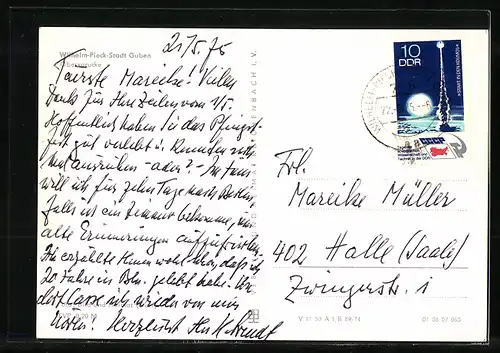 Wilhelm-Pieck-Stadt Guben
21/5. 75
Mareike! Vielen
Dank für Ihre Zeilen vom 1/5.
Hoffentlich haben Sie das Pfingst-
fest gut verlebt u. konnten sich
mal ausruhen - oder? - Im Juni
will ich für zehn Tage nach Berlin,
falls ich ein Zimmer bekomme, um
alte Erinnerungen aufzufrischen.
Ich erzählte Ihnen wohl schon, daß ich
20 Jahre in Bln. gelebt habe. Von
dort lasse ich wieder von mir
hören! Herzlichst Ihr
10
DDR
Frl.
Mareike Müller
402 Halle (Saale)
Zwingerstr. 1
V 11 50 A 1 B 69/N
01 06 07 065